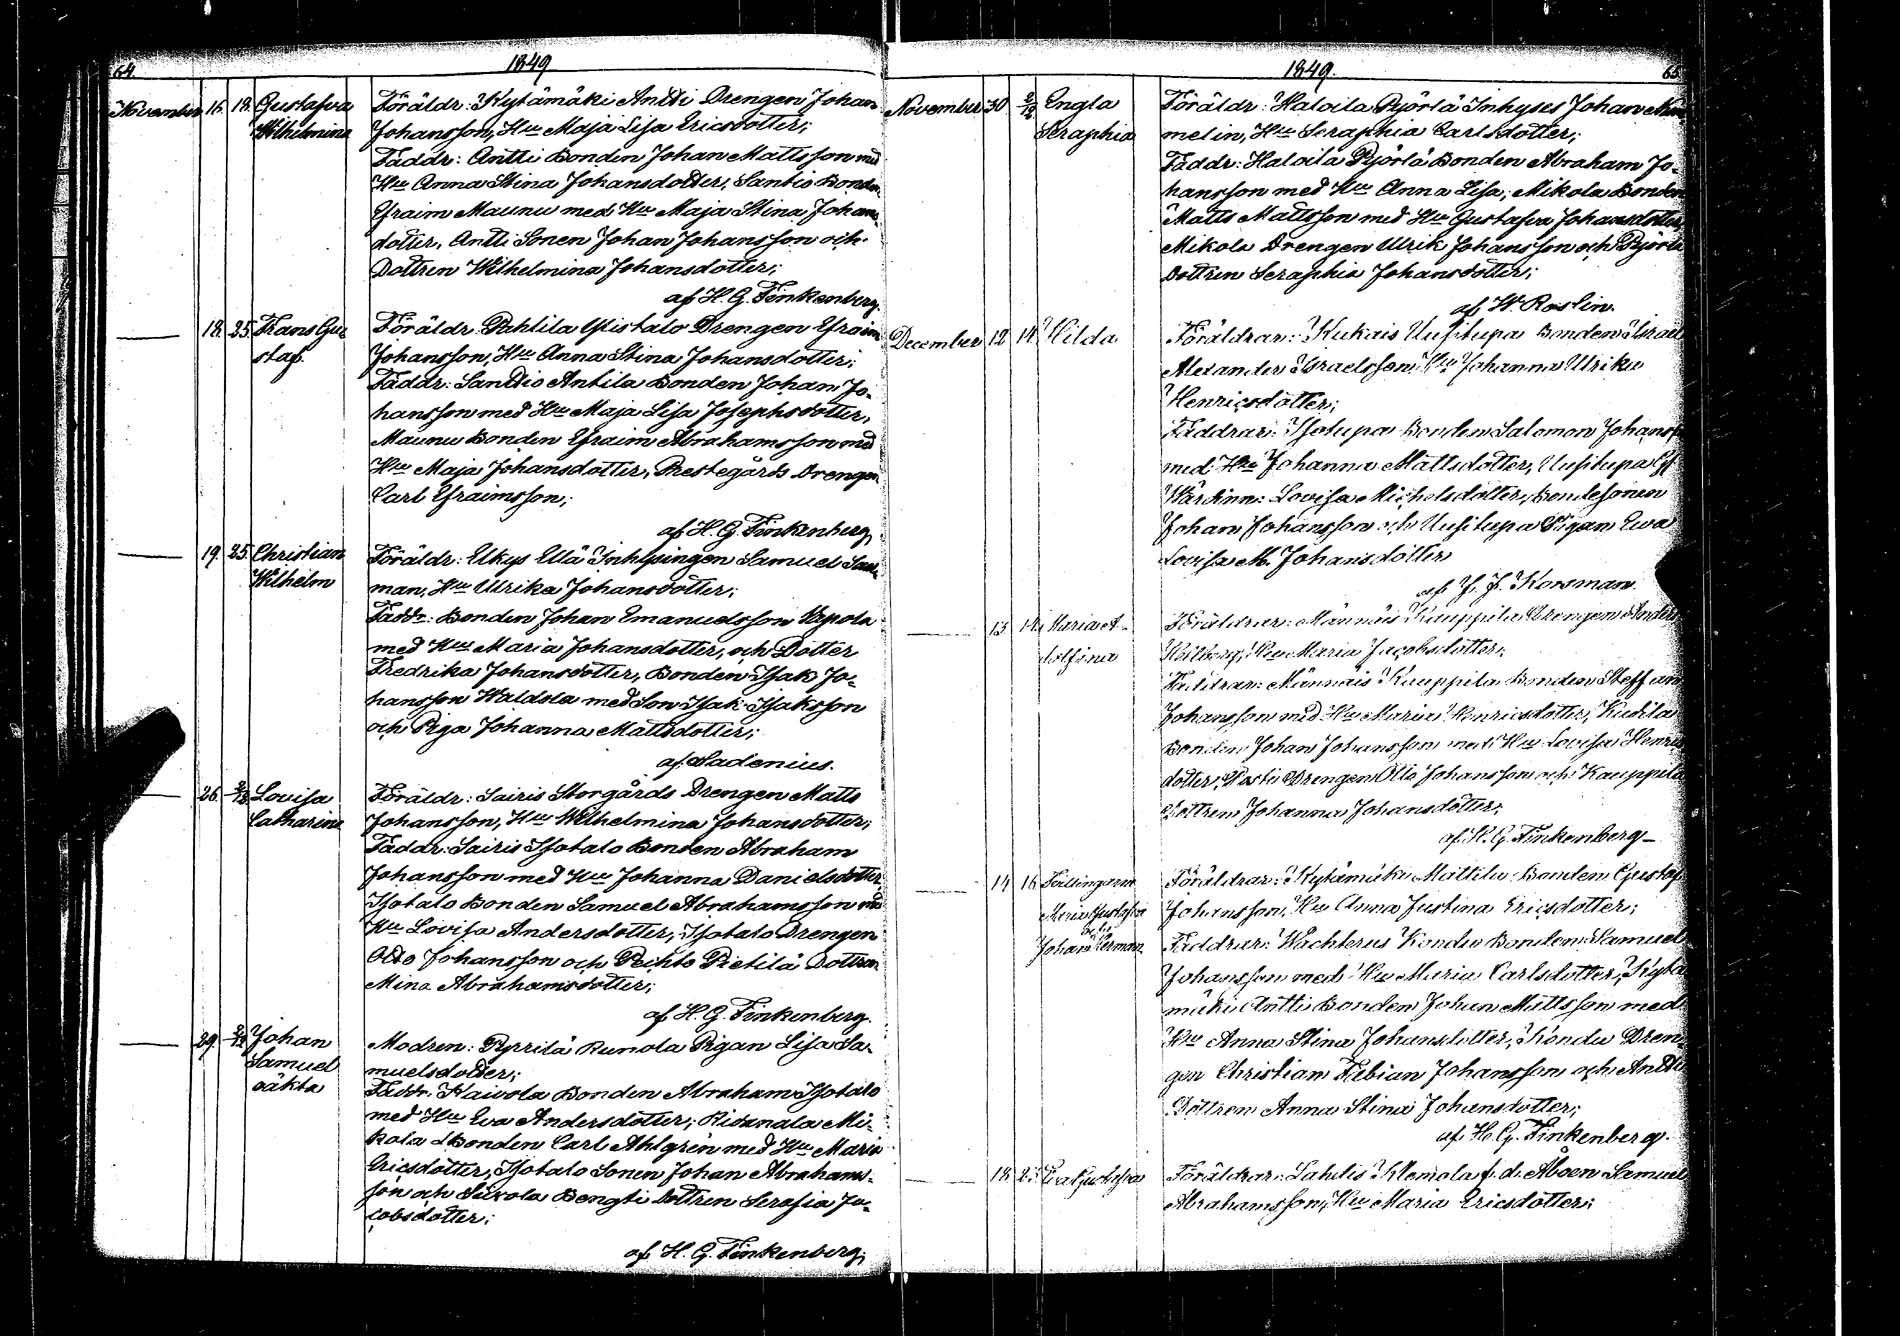 64.
1849
November 16. 18. Gustafva Föräldr: Kytämäki Antti Drengen Johan
Wilhelmina Johansson, Hu Maja Lisa Ericsdotter;
Faddr: Antti Bonden Johan Mattsson med
Hu Anna Stina Johansdotter, Santio Bonden
Efraim Maunu med Hu Maja Stina Johans-
dotter, Antti Sonen Johan Johansson och
Dottren Wilhelmina Johansdotter;
af H. G. Finkenberg.
— 18. 25. Frans Gu- Föräldr: Pahlila Ylistalo Drengen Efraim
staf. Johansson, Hu Anna Stina Johansdotter;
Faddr: Santtio Antila Bonden Johan Jo-
hansson med Hu Maja Lisa Josephsdotter,
Maunu Bonden Efraim Abrahamsson med
Hu Maja Johansdotter, Prestegårds Drengen
Carl Efraimsson;
af H. G. Finkenberg.
— 19. 25. Christian Föräldr: Elkys Ellä Inhysingen Samuel
Wilhelm man, Hu Ulrika Johansdotter;
Faddr: Bonden Johan Emanuelsson Uapola
med Hu Maria Johansdotter, och Dotter
Fredrika Johansdotter, Bonden Isak Jo-
hansson Waldola med Son Isak Isaksson
och Piga Johanna Mattsdotter;
af Sadenius.
— 26. 2/12 Lovisa Föräldr: Sairis Storgårds Drengen Matts
Catharina Johansson, Hu Wilhelmina Johansdotter;
Faddr: Sairis Isotalo Bonden Abraham
Johansson med Hu Johanna Danielsdotter,
Isotalo Bonden Samuel Abrahamsson med
Hu Lovisa Andersdotter, Isotalo Drengen
Otto Johansson och Pechto Pietilä Dottren
Mina Abrahamsdotter;
af H. G. Finkenberg.
— 29. 2/12 Johan Modren: Pyrrilä Runola Pigan Lisa Sa-
Samuel muelsdotter;
oäkta Faddr: Kaivola Bonden Abraham Isotalo
med Hu Eva Andersdotter, Ridanala Mi-
kola Bonden Carl Ahlgrén med Hu Maria
Ericsdotter, Isotalo Sonen Johan Abrahams-
son och Sukola Bengti Dottren Serafia Ja-
cobsdotter;
af H. G. Finkenberg;
1849.
65
November 30 2/12 Engla Föräldr: Haloila Pyörlä Inhyses Johan
Seraphia melin, Hu Seraphia Carlsdotter;
Faddr: Haloila Pyörlä Bonden Abraham Jo-
hansson med Hu Anna Lisa, Mikola Bonden
Matts Mattsson med Hu Gustafva Johansdotter,
Mikola Drengen Ulrik Johansson och Pyörlä
Dottren Seraphia Johansdotter;
af W. Roslin.
December 12 14 Hilda Föräldrar: Kukais Uusitupa Bonden Israel
Alexander Israelsson, Hu Johanna Ulrika
Henricsdotter;
Faddrar: Isotupa Bonden Salomon Johanss
med Hu Johanna Mattsdotter, Uusitupa Gl
Wärdinn: Lovisa Michelsdotter, Bondesonen
Johan Johansson och Uusitupa Pigan Ewa
Lovisa M. Johansdotter
af J. J. Korsman.
— 13 14 Maria A- Föräldrar: Männäis Kauppila Drengen Anders
dolfina Hu Maria Jacobsdotter;
Faddrar: Männäis Kauppila Bonden Steffan
Johansson med Hu Maria Henricsdotter, Kutila
Bonden Johan Johansson med Hu Lovisa Henrics
dotter, Drengen Otto Johansson och Kauppila
Dottren Johanna Johansdotter;
af H. G. Finkenberg—
— 14 16 Tvillingarne Föräldrar: Kytämäki Mattila Bonden Gustaf
Maria Gustafva Johansson, Hu Anna Justina Ericsdotter;
och
Johan Herman Faddrar: Wächterus Kondu Bonden Samuel
Johansson med Hu Maria Carlsdotter, Kytä-
mäki Antti Bonden Johan Mattsson med
Hu Anna Stina Johansdotter, Kondu Dren-
gen Christian Fabian Johansson och Antti
Dottren Anna Stina Johansdotter;
af H. G. Finkenberg.
— 18 25 Eva Gustafva Föräldrar: Lahdis Klemola f. d. Åboen Samuel
Abrahamsson, Hu Maria Ericsdotter;